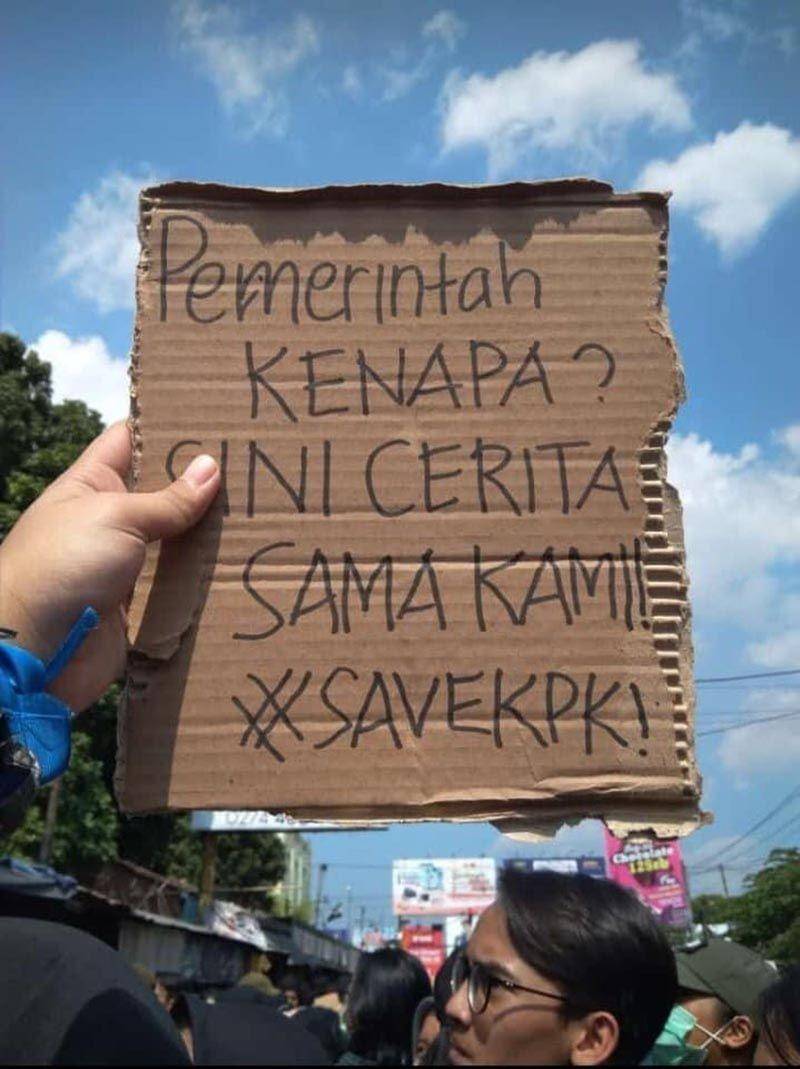 Pemerintah
KENAPA?
SINI CERITA
SAMA KAMI!!
#SAVEKPK!
Chocolate